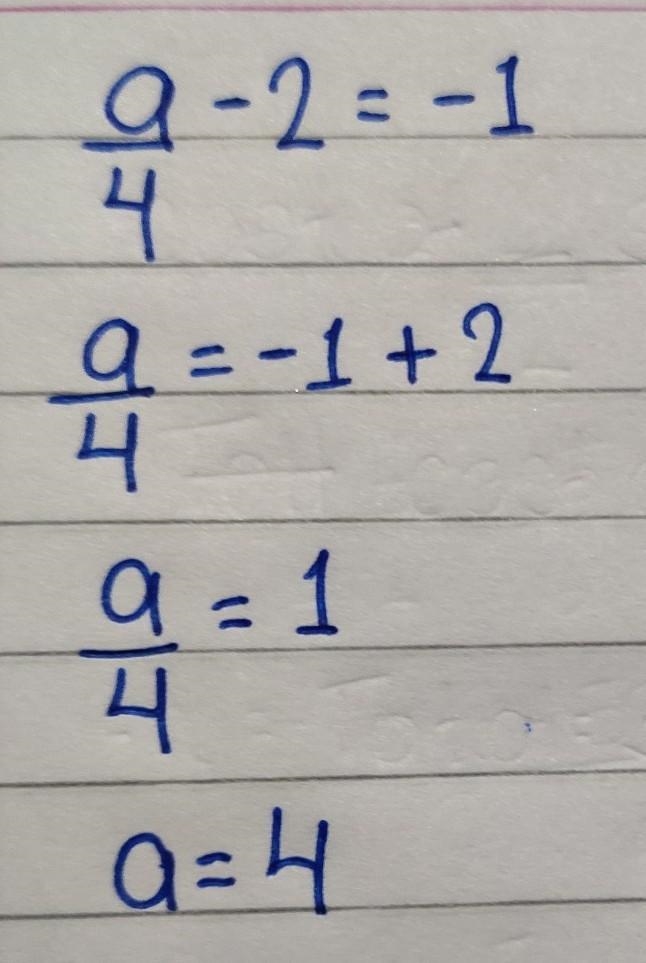 a/4 - 2 = -1
a/4 = -1 + 2
a/4 = 1
a = 4